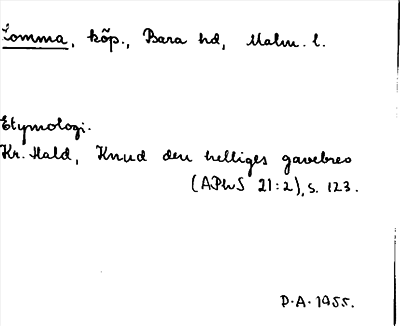 Lomma, köp., Bara hd, Malm. l.
Etymologi.
Kr. Hald, Knud den helliges gavebrev
(APhS 21:2), s. 123.
P.A. 1955.